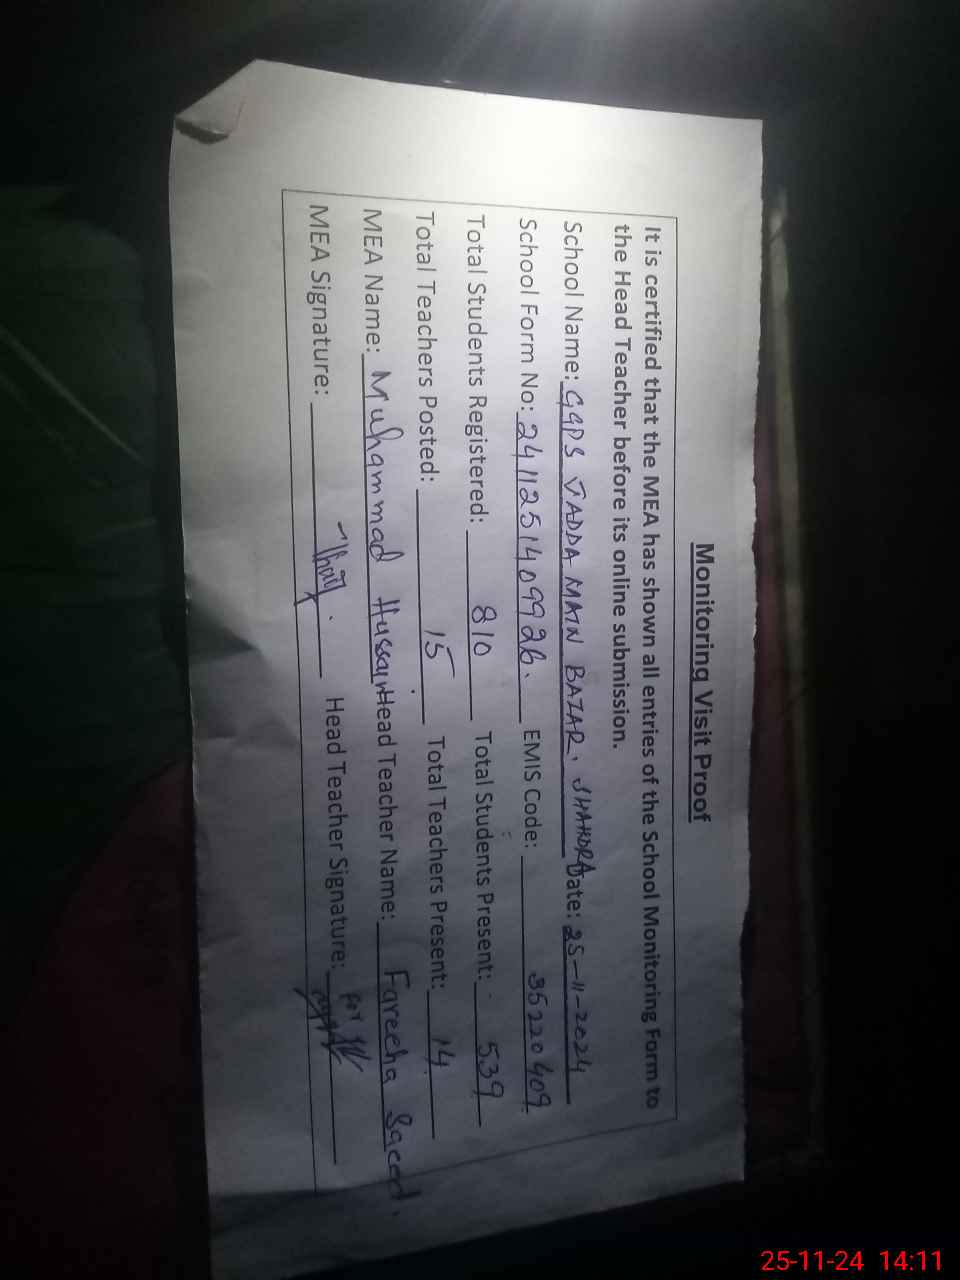 Monitoring Visit Proof
It is certified that the MEA has shown all entries of the School Monitoring Form to
the Head Teacher before its online submission.
School Name: GGPS JADDA MAIN BAZAR, SHAHDRA Date: 25-11-2024
School Form No: 24112514099 EMIS Code: 35220409
Total Students Registered: 810 Total Students Present: 539
Total Teachers Posted: 15 Total Teachers Present: 14
MEA Name: Muhammad Hussain Head Teacher Name: Fareeha Saeed.
MEA Signature: Head Teacher Signature: For
25-11-24 14:11